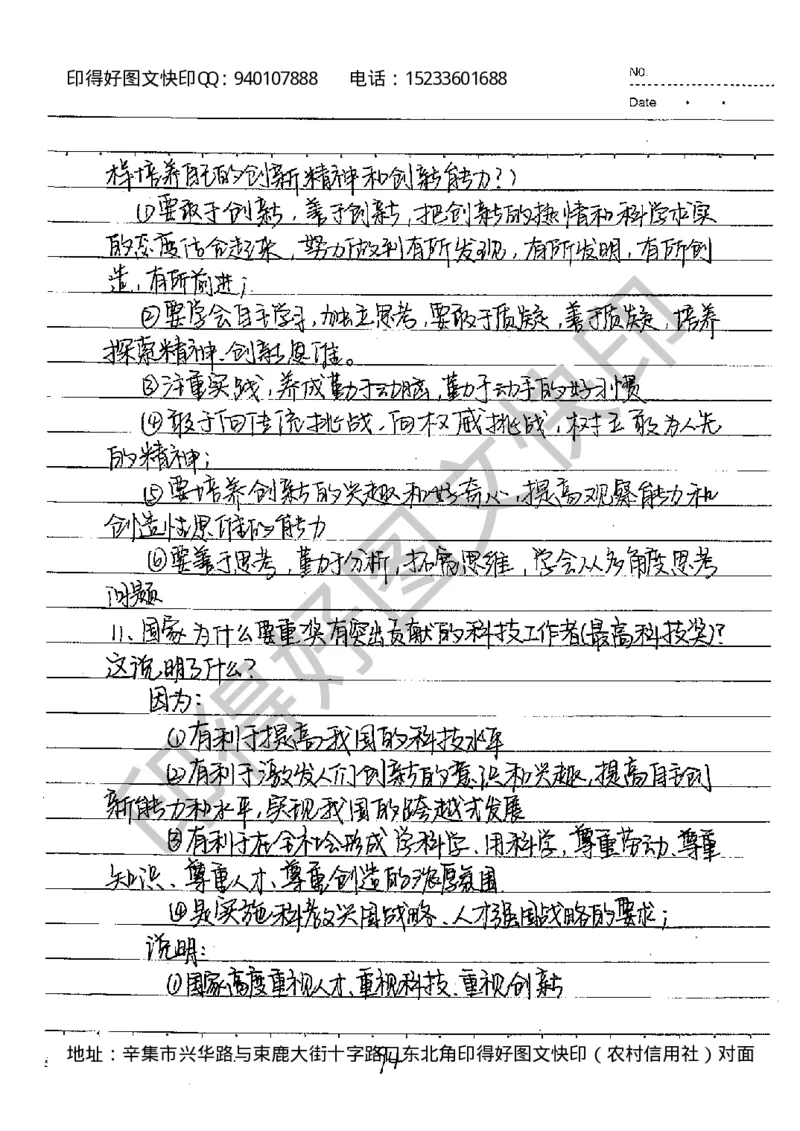 印得好图文快印QQ：940107888 电话：15233601688
No.
Date
样培养自己的创新精神和创新能力？）
①要敢于创新，善于创新，把创新的热情和科学求实
的态度结合起来，努力做到有所发现，有所发明，有所创
造，有所前进；
②要学会自主学习，独立思考，要敢于质疑，善于质疑，培养
探索精神、创新思维。
③注重实践，养成勤于动脑，勤于动手的好习惯
④敢于向传统挑战、向权威挑战，树立敢为人先
的精神；
⑤要培养创新的兴趣和好奇心，提高观察能力和
创造性思维的能力
⑥要善于思考，勤于分析，拓宽思维，学会从多角度思考
问题
11、国家为什么要重奖有突出贡献的科技工作者(最高科技奖)？
这说明了什么？
因为：
①有利于提高我国的科技水平
②有利于激发人们创新的意识和兴趣，提高自主创
新能力和水平，实现我国的跨越式发展
③有利于在全社会形成学科学、用科学，尊重劳动、尊重
知识、尊重人才、尊重创造的浓厚氛围
④是实施科教兴国战略、人才强国战略的要求；
说明：
①国家高度重视人才、重视科技、重视创新
印得好图文快印
地址：辛集市兴华路与束鹿大街十字路口东北角印得好图文快印（农村信用社）对面